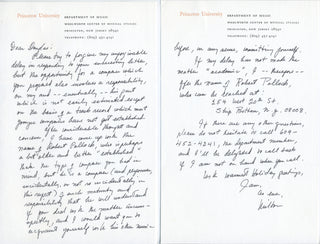 Princeton University
DEPARTMENT OF MUSIC
WOOLWORTH CENTER OF MUSICAL STUDIES
PRINCETON, NEW JERSEY 08540
TELEPHONE: (609) 452-4241
Dear Douglas:
Please try to forgive my unforgivable
delay in responding to your interesting letter,
but the opportunity for a composer which
your project also involves a responsibility,
on my end — — the point
which is not easily extended except
on the basis of a track record which most
younger composers have not yet established.
After considerable thought and
concern, I have come up with the
name of Robert Pollock, who is perhaps
a bit older and better "established"
than the type of composer you had in
mind, but he is a composer (and performer,
incidentally, or not so incidentally in
this respect) of such maturity and
responsibility that he will understand
if you find work
and I would want you to
acquaint yourself with his own music
Princeton University
DEPARTMENT OF MUSIC
WOOLWORTH CENTER OF MUSICAL STUDIES
PRINCETON, NEW JERSEY 08540
TELEPHONE: (609) 452-4241
before, in any sense, committing yourself.
If my delay has not made the
matter "academic", I — — —
offer the name of Robert Pollock,
who can be reached at:
254 West 20th St.
Ship Bottom, N.J. 08008.
If there are any other questions,
please do not hesitate to call 609-
452-4241, the department number,
and I'll be delighted to call back
if I am not on hand when you call.
With warmest holiday greetings,
I am,
as ever,
Milton